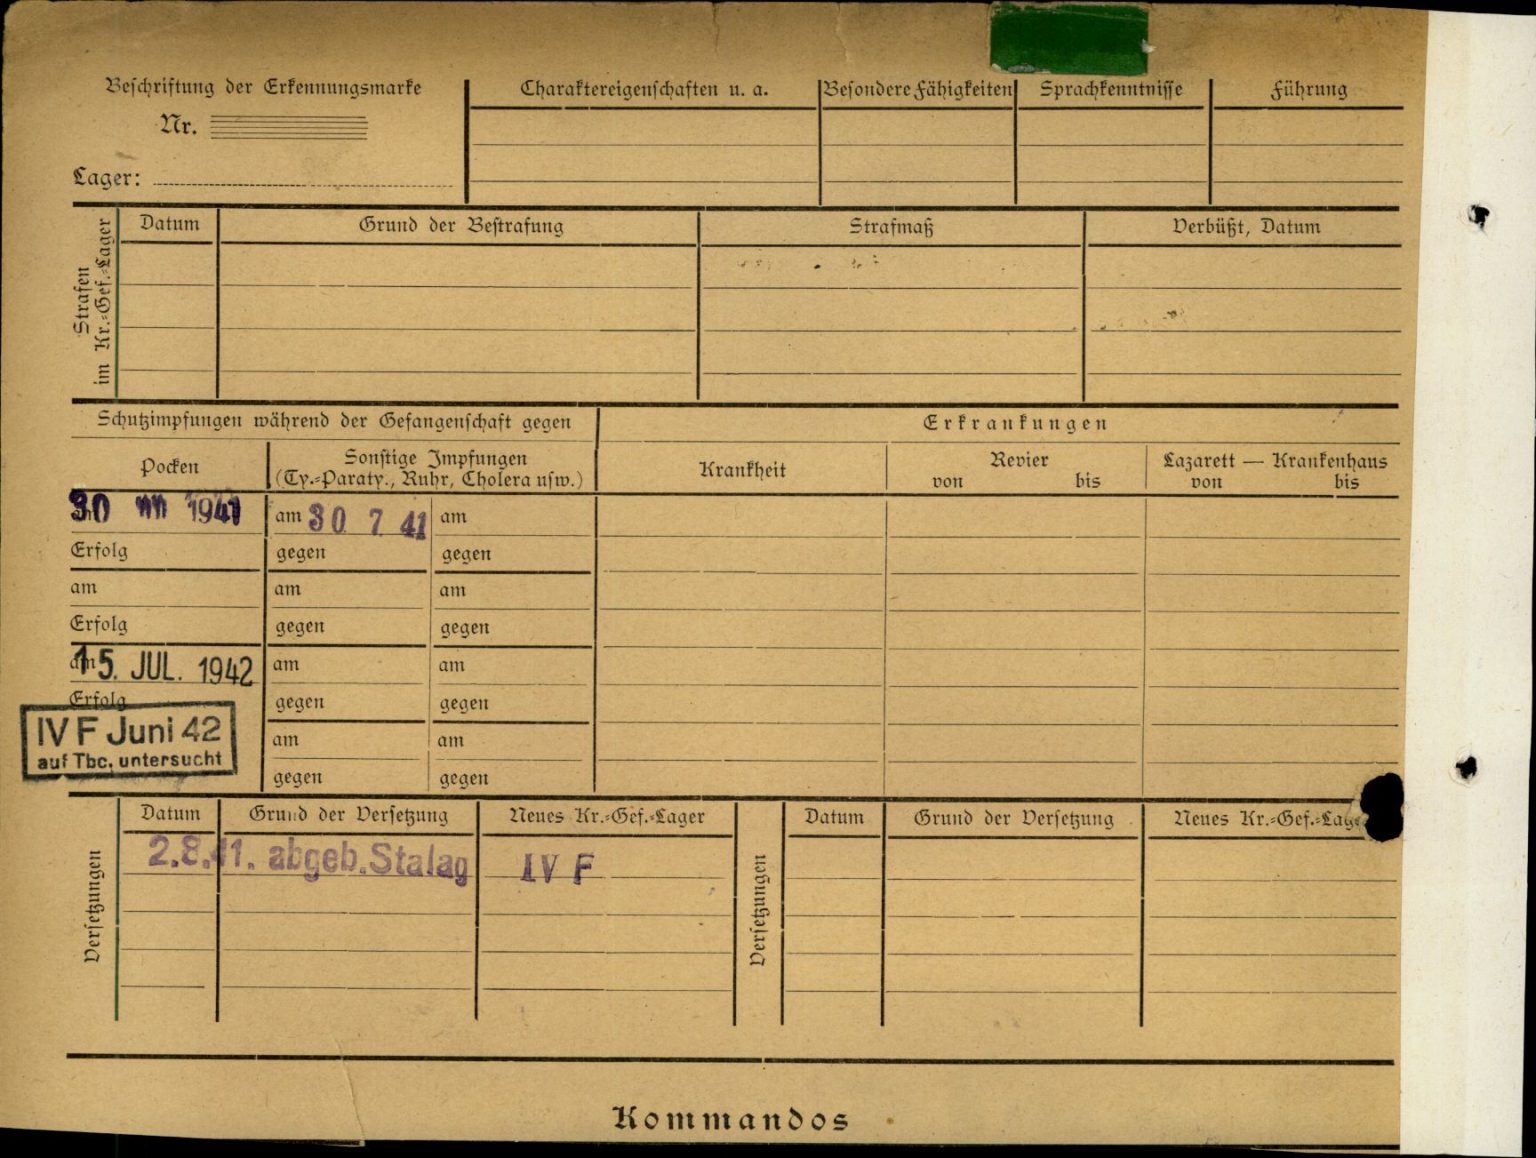 Beschriftung der Erkennungsmarke
Nr.
Lager:
Charaktereigenschaften u. a.
Besondere Fähigkeiten
Sprachkenntnisse
Führung
Strafen
im Kr.-Gef.-Lager
Datum
Grund der Bestrafung
Strafmaß
Verbüßt, Datum
Schutzimpfungen während der Gefangenschaft gegen
Erkrankungen
Pocken
Sonstige Impfungen
(Ty.-Paraty., Ruhr, Cholera usw.)
Krankheit
Revier
von bis
Lazarett — Krankenhaus
von bis
30 1941 am 30 7 41 am
Erfolg gegen gegen
am am am
Erfolg gegen gegen
am 15. JUL. 1942 am am
Erfolg gegen gegen
IV F Juni 42
auf Tbc. untersucht
am am
gegen gegen
Versetzungen
Datum Grund der Versetzung Neues Kr.-Gef.-Lager
2.8.41. abgeb. Stalag IV F
Versetzungen
Datum Grund der Versetzung Neues Kr.-Gef.-Lage
Kommandos